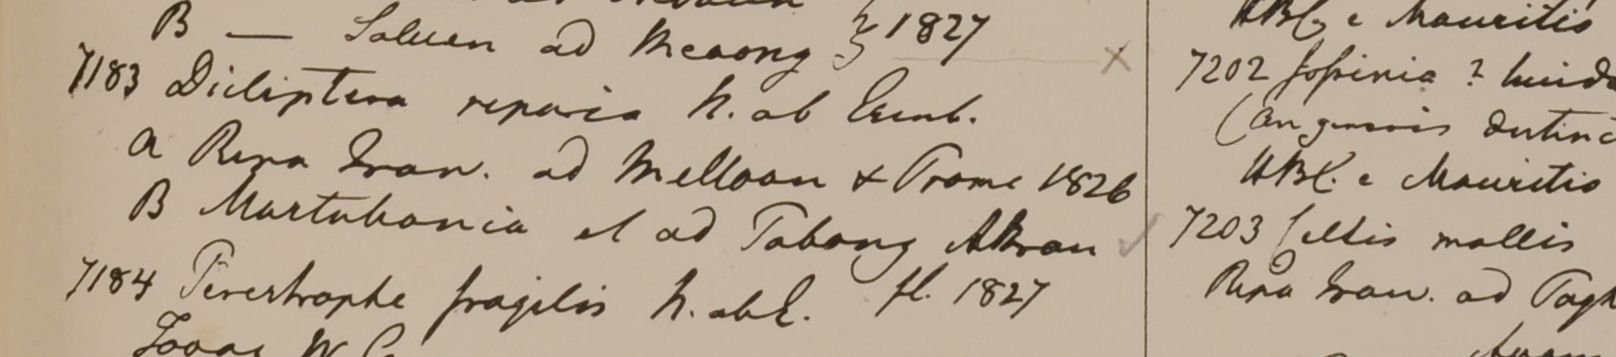 B — Saluen ad Meaong } 1827
7183 Dicliptera riparia N. ab Esenb.
a Ripa Iraw. ad Melloon & Prome 1826
B Martabania et ad Tabong Atran
7184 Peristrophe fragilis N. ab E. fl. 1827
Tavoy W. G.
HBC. e Mauritio
7202 Josinia ?
(an generis distinc
HBC. e Mauritio
7203 Celtis mollis
Ripa Iraw. ad Pagh